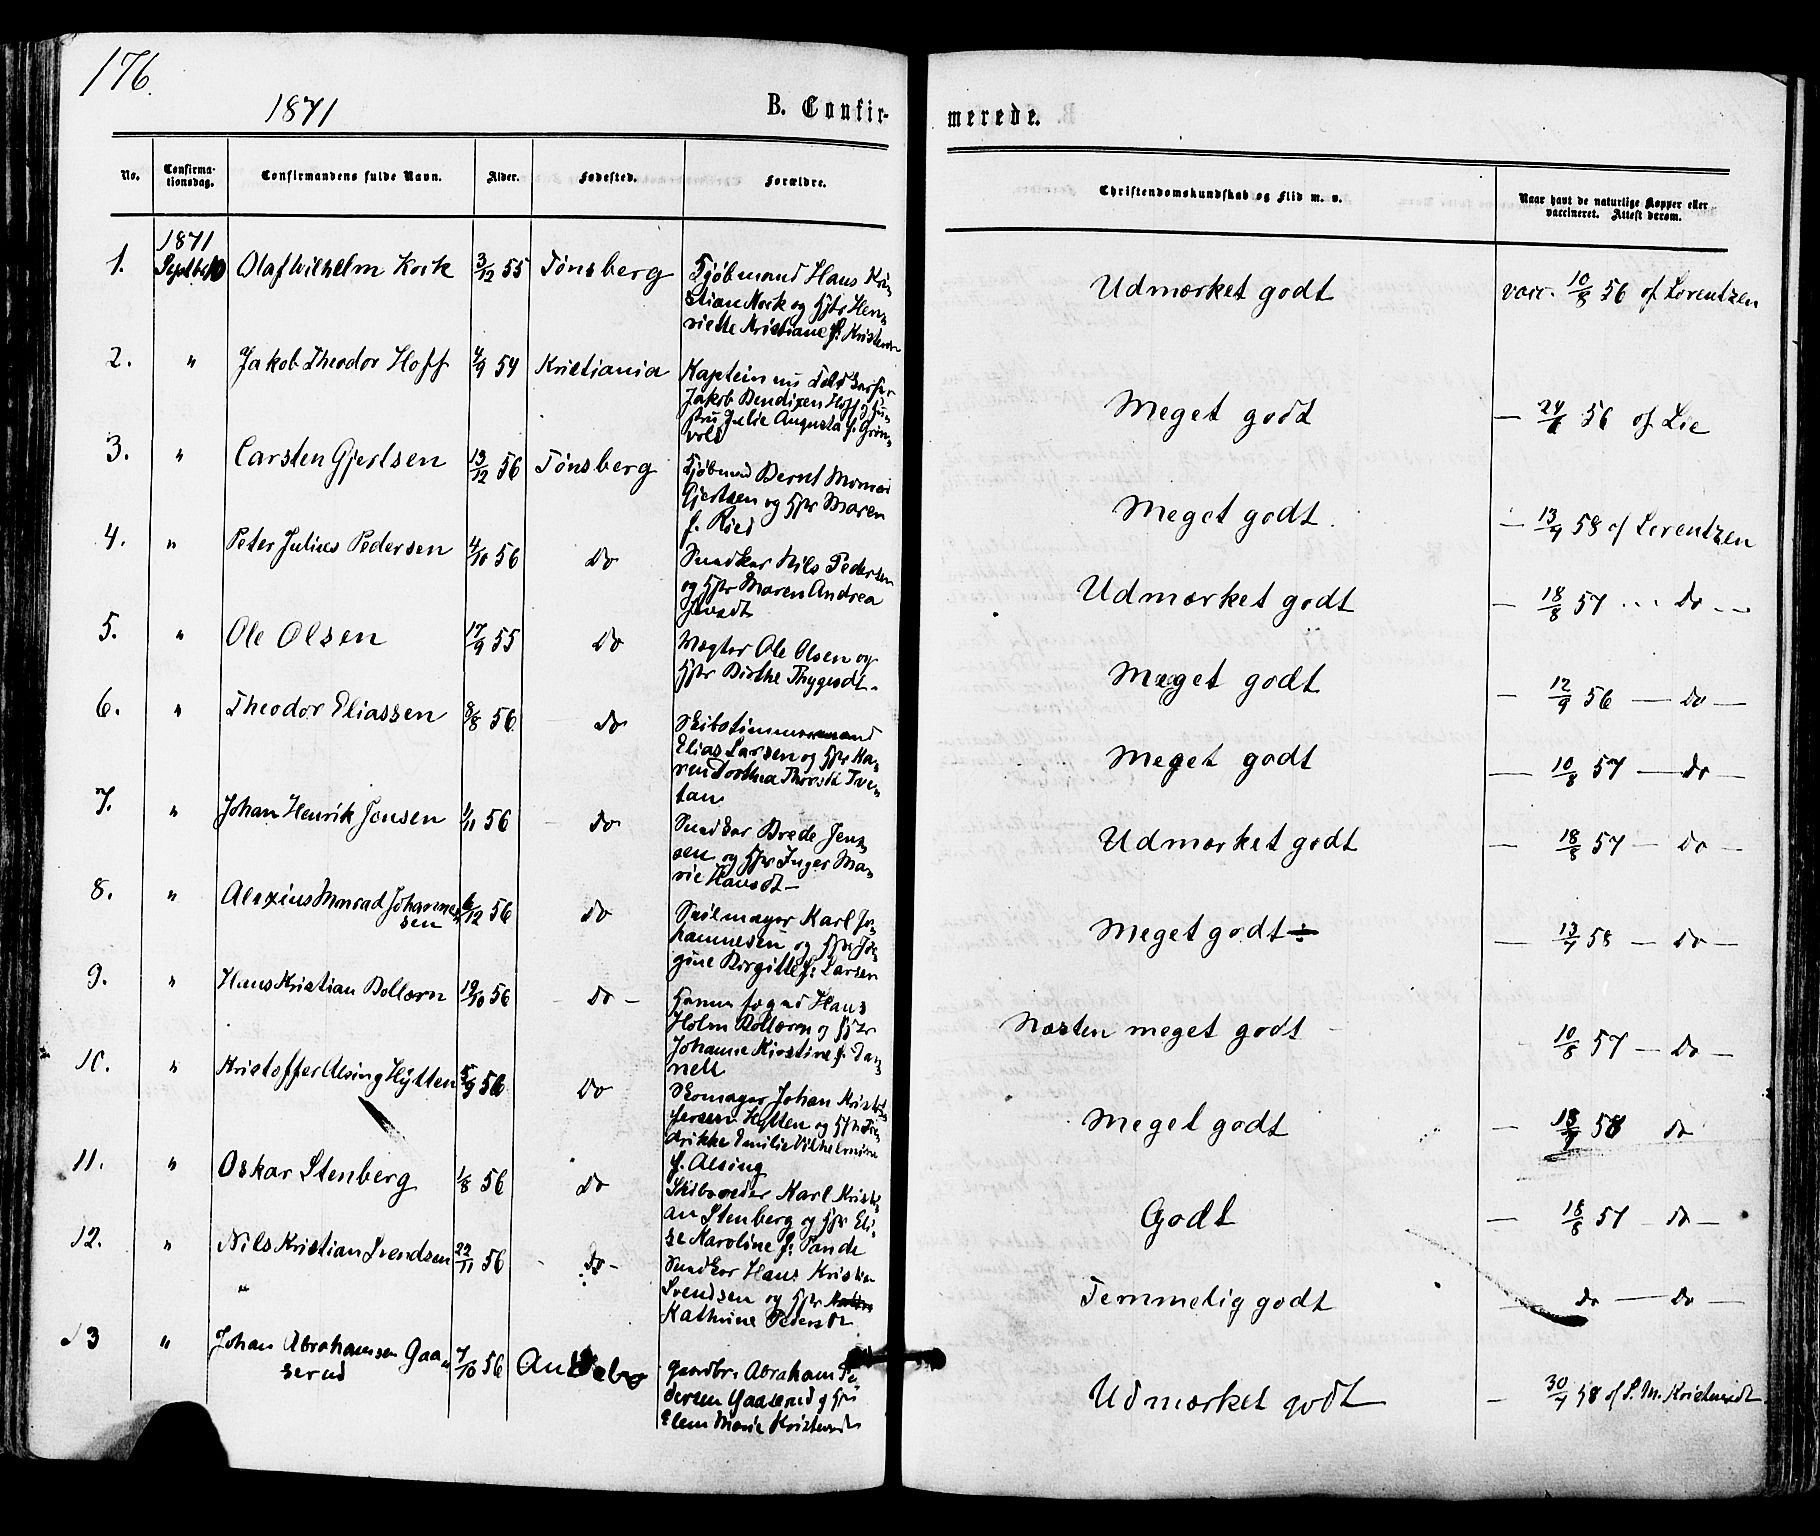 176.
1871
B. Confirmerede.
No.
Confirmationsdag.
Confirmandens fulde Navn.
Alder.
Fødested.
Forældre.
Christendomskundskab og Flid m. v.
Naar havt de naturlige Kopper eller vaccineret. Attest derom.
1. 1871 Septbr 10 Olaf Wilhelm 3/12 55 Tønsberg
Kjøbmand Hans Kri-
stian og Hstr Hen-
riette Kristiane f.
Udmærket godt
vacc. 10/8 56 af Lorentzen
2. " Jakob Theodor Hoff 4/9 54 Kristiania
Kaptein nu
Jakob Bendixen Hoff og Hu-
stru Julie Augusta f. Grön-
vold
Meget godt
— 56 af Lie
3. " Carsten Gjertsen 13/12 56 Tønsberg
Kjøbmand Bernt
Gjertsen og Hstr Maren
f. Ried
Meget godt
— 58 af Lorentzen
4. " Peter Julius Pedersen 4/10 56 Do
Snedker Nils Pedersen
og Hstr Maren Andrea
Udmærket godt
— 18/8 57 — Do —
5. " Ole Olsen 17/9 55 Do
Mægler Ole Olsen og
Hstr Birthe Thygesdt.
Meget godt
— 12/9 56 — Do —
6. " Theodor Eliassen 8/8 56 Do
Skibstimmermand
Elias Larsen og Hstr Ka-
ren Dorthea Thorsdt Tve-
tan
Meget godt
— 10/8 57 — Do —
7. " Johan Henrik Jensen 1/11 56 Do
Snedker Brede Jens-
sen og Hstr Inger Ma-
rie Hansdt —
Udmærket godt
— 18/8 57 — Do —
8. " Alexius Konrad Johannes-
sen 6/12 56 Do
Seilmager Karl Jo-
hannesen og Hstr Jør-
gine Birgitte f. Larsen
Meget godt ÷
— 58 — Do —
9. " Hans Kristian Bollærn 19/10 56 — Do —
Hans
Holm Bollærn og Hstr
Johanne Kirstine f. Dan-
nell
Næsten meget godt
10/8 57 — Do —
10. " Kristoffer Alsing Hytten 5/9 56 Do
Skomager Johan Kristof-
fersen Hytten og Hstr Fre-
drikke Emilie Vilhelmine
f. Alsing
Meget godt
— 58 Do
11. " Oskar Stenberg 1/8 56 Do
Skibsreder Karl Kristi-
an Stenberg og Hstr Eli-
se Karoline f. Sande
Godt
— 18/8 57 — Do —
12. " Nils Kristian Svendsen 22/11 56 — Do —
Snedker Hans Kristian
Svendsen og Hstr
Kathrine Pedersdt
Temmelig godt
— Do — Do —
13 " Johan Abrahamsen Gaa-
serud 7/10 56 Andebo
Gaardbr. Abraham Pe-
dersen Gaaserud og Hstr
Elen Marie Kristensdt
Udmærket godt
— 58 af S. M. Kristensdt.